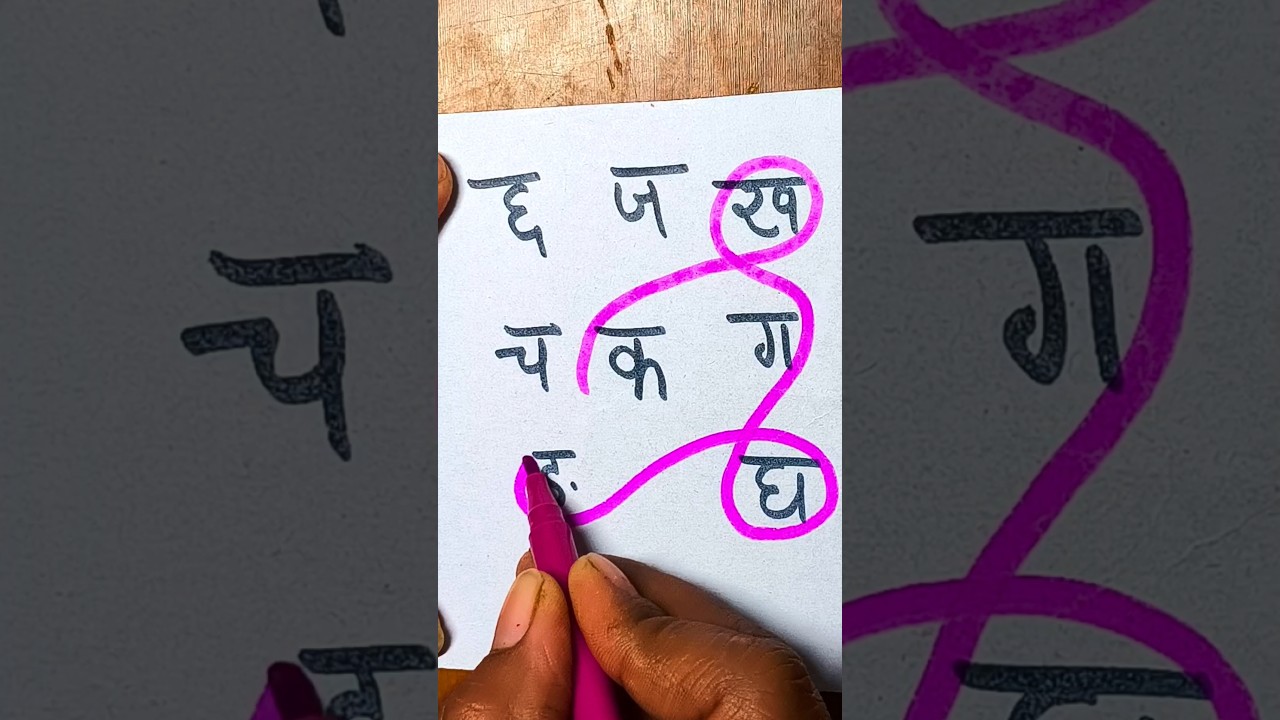 छ ज ख
च क ग
ङ घ